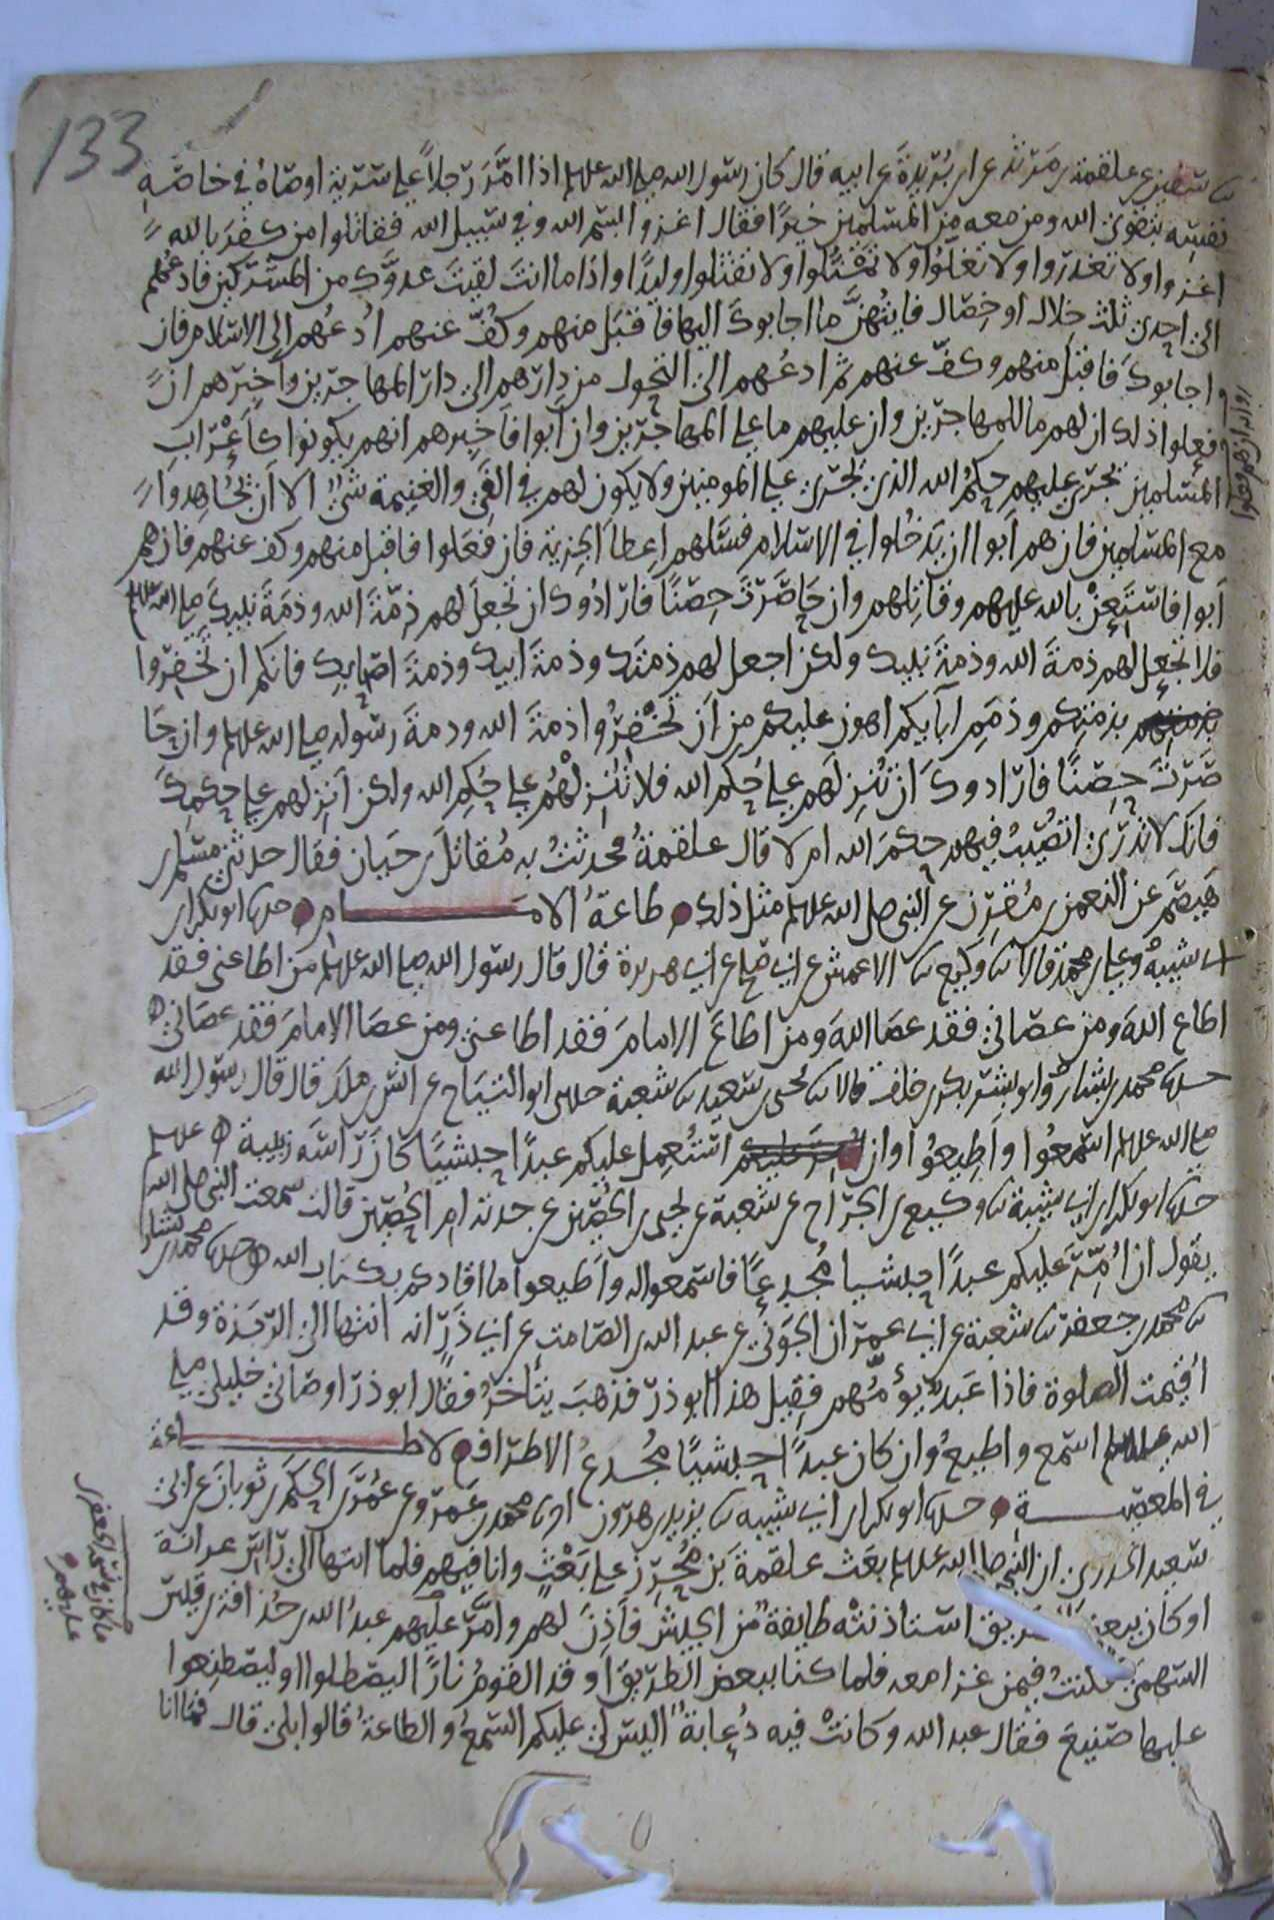 133
سفين عن علقمة بن مرثد عن ابن بُرَيْدَةَ عن ابيه قال كان رسول الله صلى الله عليه وسلم اذا امَّرَ رَجلاً على سَرية اوصَاهُ في خاصَّةِ
نفسِه بتقوى الله ومن معه من المسلمين خيرًا فقال اغزوا بسم الله وفي سبيل الله فقاتلوا من كفرَ بالله
اغزوا ولا تغدروا ولا تغلّوا ولا تمثّلوا ولا تقتلوا وليدًا واذا ما انتَ لقيتَ عدوَّك من المشركين فادعُهم
الى احدى ثلث خلال او خِصَال فايتُهنَّ ما اجابوكَ اليها فاقبَل منهم وكُفَّ عنهم اُدعُهم الى الاسلام فان
اجابوكَ فاقبل منهم وكفّ عنهم ثم ادعُهم الى التحول من دارهم الى دار المهاجرين واخبرهم ان
فعلوا ذلك ان لهم ما للمهاجرين وان عليهم ما على المهاجرين وان ابوا فاخبرهم انهم يكونوا كأعْرَاب
المسلمين تجري عليهم حكمُ الله الذي يجري على المومنين ولا يكون لهم في الفي والغنيمة شيٌ الا ان يُجاهدوا
مع المسلمين فان هم اَبوا ان يَدخُلوا في الاسلام فسَلهم اعِطا الجزية فان فعَلوا فاقبل منهم وكف عنهم فان هم
اَبوا فاستَعِنْ بالله عليهم وقاتِلهم وان حَاصَرتَ حِصْنًا فارَادُوك ان تجعلَ لهم ذِمّةَ الله وذمَةَ نبيك صلى الله عليه وسلم
فلا تجعل لهم ذمةَ الله وذمةَ نبيك ولكن اجعل لهم ذمتَك وذمةَ ابيك وذمةَ اصحابك فانكم ان تُخفِروا
بذمتكم وذمَمِ آبايكم اهون عليكم مِن اَن تُخْفِرُوا ذمةَ الله وذمةَ رسوله صلى الله عليه وسلم وان حَا
صَرْتَ حِصْنًا فارَادوكَ اَن تُنزِلَهم على حُكم الله فلا تُنزلْهُم على حُكم الله ولكن اَنزِلهم على حكمِكَ
فانك لا تدرى اتُصيبُ فيهم حكمَ الله ام لا قال علقمةُ فحدثتُ به مُقاتلَ بن حَيان فقال حدثني مسلم بن
هَيصَم عَن النعمن بن مُقرّن عن النبى صلى الله عليه وسلم مثل ذلك طاعةُ الامام حدثنا ابو بكر بن
ابى شيبة وعلي بن محمد قالا ثنا وكيع ثنا الاعمش عن ابي صالح عن ابي هريرة قال قال رسول الله صلى الله عليه وسلم مَن اطاعنى فقد
اطاع اللهَ ومن عصانى فقد عصَا اللهَ ومن اطاعَ الامامَ فقد اطاعنى ومن عصَا الامامَ فقد عصَانى
حدثنا محمد بن بشار وابو بشر بكر بن خلف قالا ثنا يحيى بن سعيد ثنا شعبة حدثنى ابو التيَاح عن انس بن ملك قال قال رسول الله
صلى الله عليه وسلم اسْمعُوا واَطِيعُوا وان استُعمِل عليكم عبدًا حبشيًا كانَّ رَاسَه زبيبة
حدثنا ابو بكر بن ابى شيبة ثنا وكيع بن الجرّاح عن شعبة عن يحيى بن الحُصَين عن جدته ام الحُصَين قالت سمعت النبى صلى الله عليه وسلم
يقول ان اُمِّرَ عليكم عبدًا حبشيا مُجدعًا فاسمعوا له واَطيعوا ما اقادكم بكتاب الله حدثنا محمد بن بشار
ثنا محمد بن جعفر ثنا شعبة عن ابى عمران الجَوْني عن عبد الله بن الصامت عن ابى ذَرّ انه انتها الى الرَّبَذة وقد
اُقيمت الصلوة فاذا عَبدٌ يؤمّهم فقيل هذا ابو ذرّ فذهبَ يتأخرُ فقال ابو ذرّ اوصَانى خليلى صلى
الله عليه وسلم اسمع واطيعُ وان كان عبدًا حبشيًا مُجدعُ الاطراف لا طاعة
في المعصية حدثنا ابو بكر بن ابى شيبه ثنا يزيد بن هرون انا محمد بن عَمرو عن عُمَرَ بن الحكَمَ بن ثوبان عن ابى
سعيد الخدرى ان النبي صلى الله عليه وسلم بعَث علقمةَ بن مُجَزِّز على بَعْثٍ وانا فيهم فلما انتها الى راس غزاته
او كان ببعض الطريق استاذنتْه طايفةٌ من الجيش فاَذِنَ لهم وامَّرَ عليهم عبدُ الله بن حُذافة بن قيس
السهمى فكنتُ فيمن غزا معه فلما كنا ببعض الطريق اَوقد القومُ نارًا ليصْطلوا او ليصْطنِعوا
عليها صنيعَ فقال عبد الله وكانتْ فيه دُعابةٌ اليس لي عليكم السمعُ والطاعةُ قالوا بلى قال فما انا